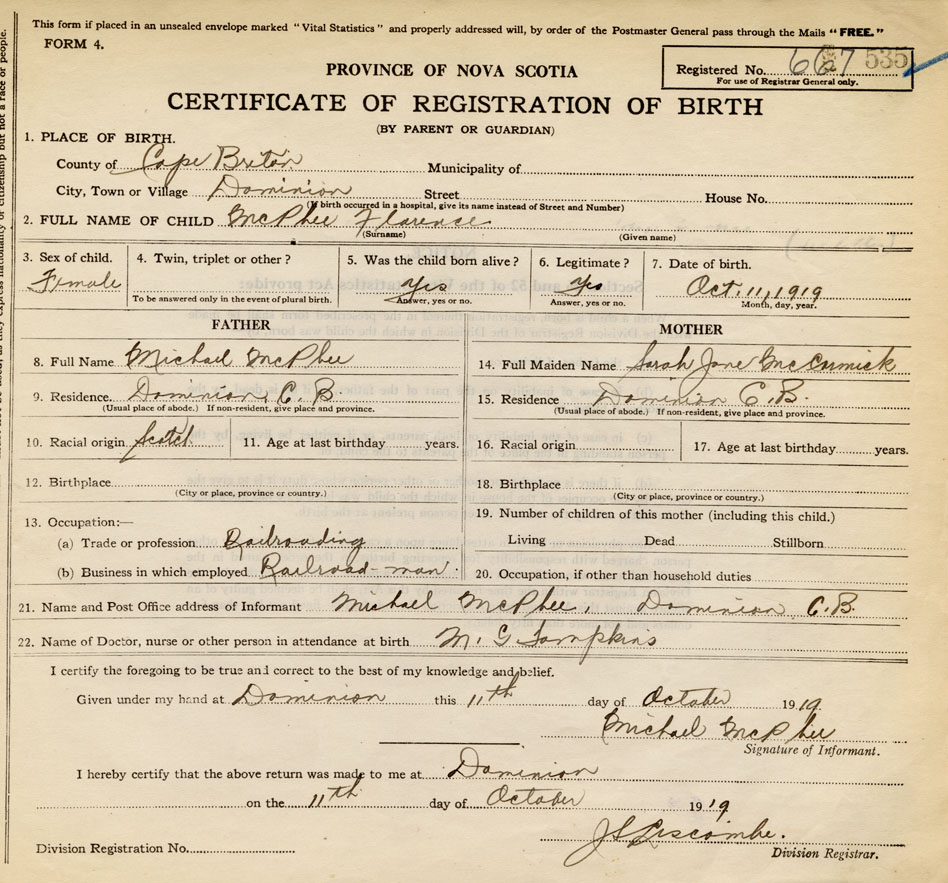 This form if placed in an unsealed envelope marked "Vital Statistics" and properly addressed will, by order of the Postmaster General pass through the Mails "FREE."
FORM 4.
Registered No. 667 535
For use of Registrar General only.
PROVINCE OF NOVA SCOTIA
CERTIFICATE OF REGISTRATION OF BIRTH
(BY PARENT OR GUARDIAN)
1. PLACE OF BIRTH.
County of Cape Breton Municipality of
City, Town or Village Dominion Street House No.
(If birth occurred in a hospital, give its name instead of Street and Number)
2. FULL NAME OF CHILD McPhee Florence
(Surname) (Given name)
3. Sex of child. 4. Twin, triplet or other? 5. Was the child born alive? 6. Legitimate? 7. Date of birth.
Female Yes Yes Oct. 11, 1919
To be answered only in the event of plural birth. Answer, yes or no. Answer, yes or no. Month, day, year.
FATHER MOTHER
8. Full Name Michael McPhee 14. Full Maiden Name Sarah Jane McCormick
9. Residence. Dominion, C. B. 15. Residence Dominion C. B.
(Usual place of abode.) If non-resident, give place and province. (Usual place of abode.) If non-resident, give place and province.
10. Racial origin Scotch 11. Age at last birthday years. 16. Racial origin 17. Age at last birthday years.
12. Birthplace 18. Birthplace
(City or place, province or country.) (City or place, province or country.)
13. Occupation:— 19. Number of children of this mother (including this child.)
(a) Trade or profession Railroading Living Dead Stillborn
(b) Business in which employed Railroad-man 20. Occupation, if other than household duties
21. Name and Post Office address of Informant Michael McPhee, Dominion C.B.
22. Name of Doctor, nurse or other person in attendance at birth M. G Tompkins
I certify the foregoing to be true and correct to the best of my knowledge and belief.
Given under my hand at Dominion this 11th day of October 1919.
Michael McPhee
Signature of Informant.
I hereby certify that the above return was made to me at Dominion
on the 11th day of October 1919
J S Liscombe.
Division Registration No. Division Registrar.